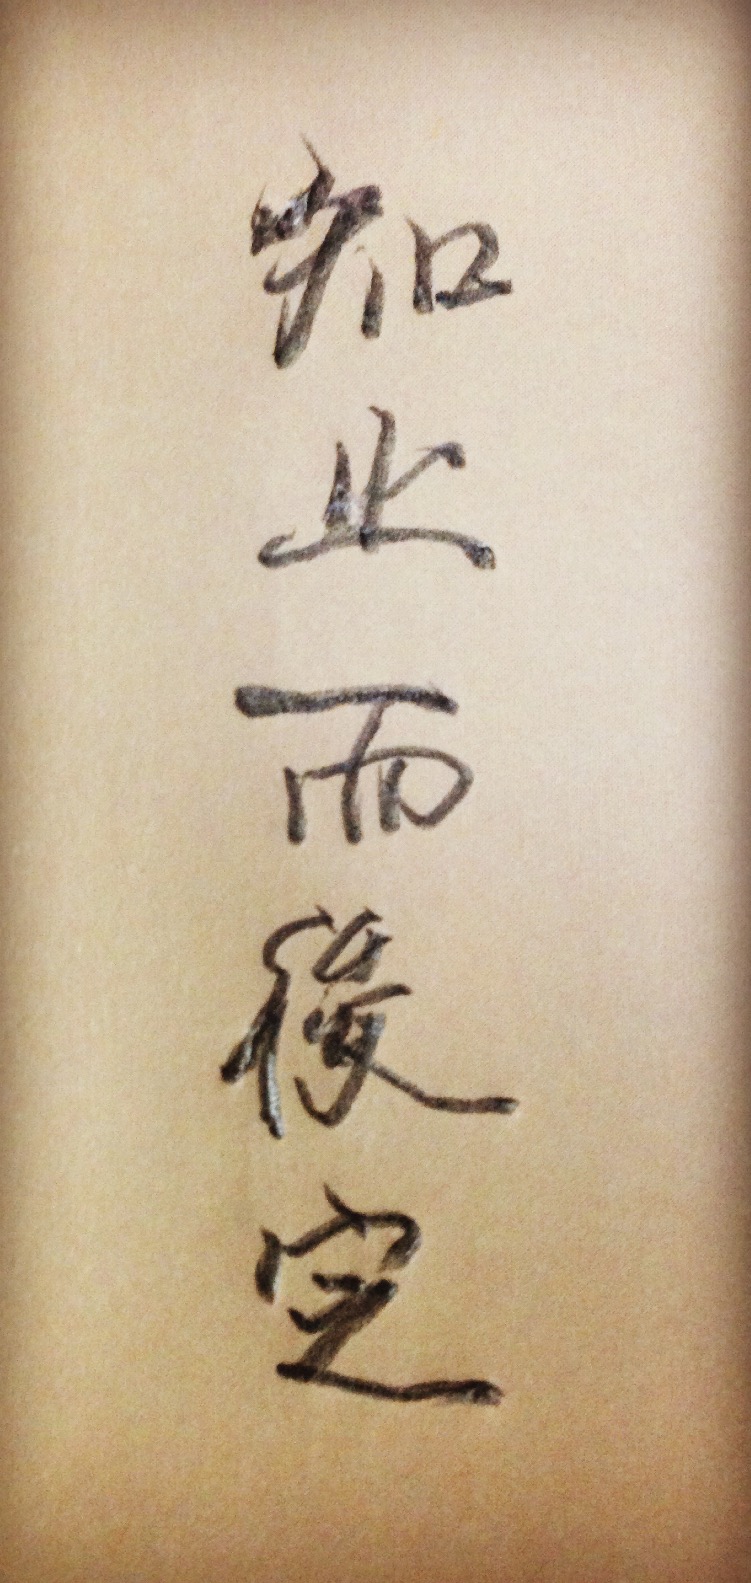 知止而後定